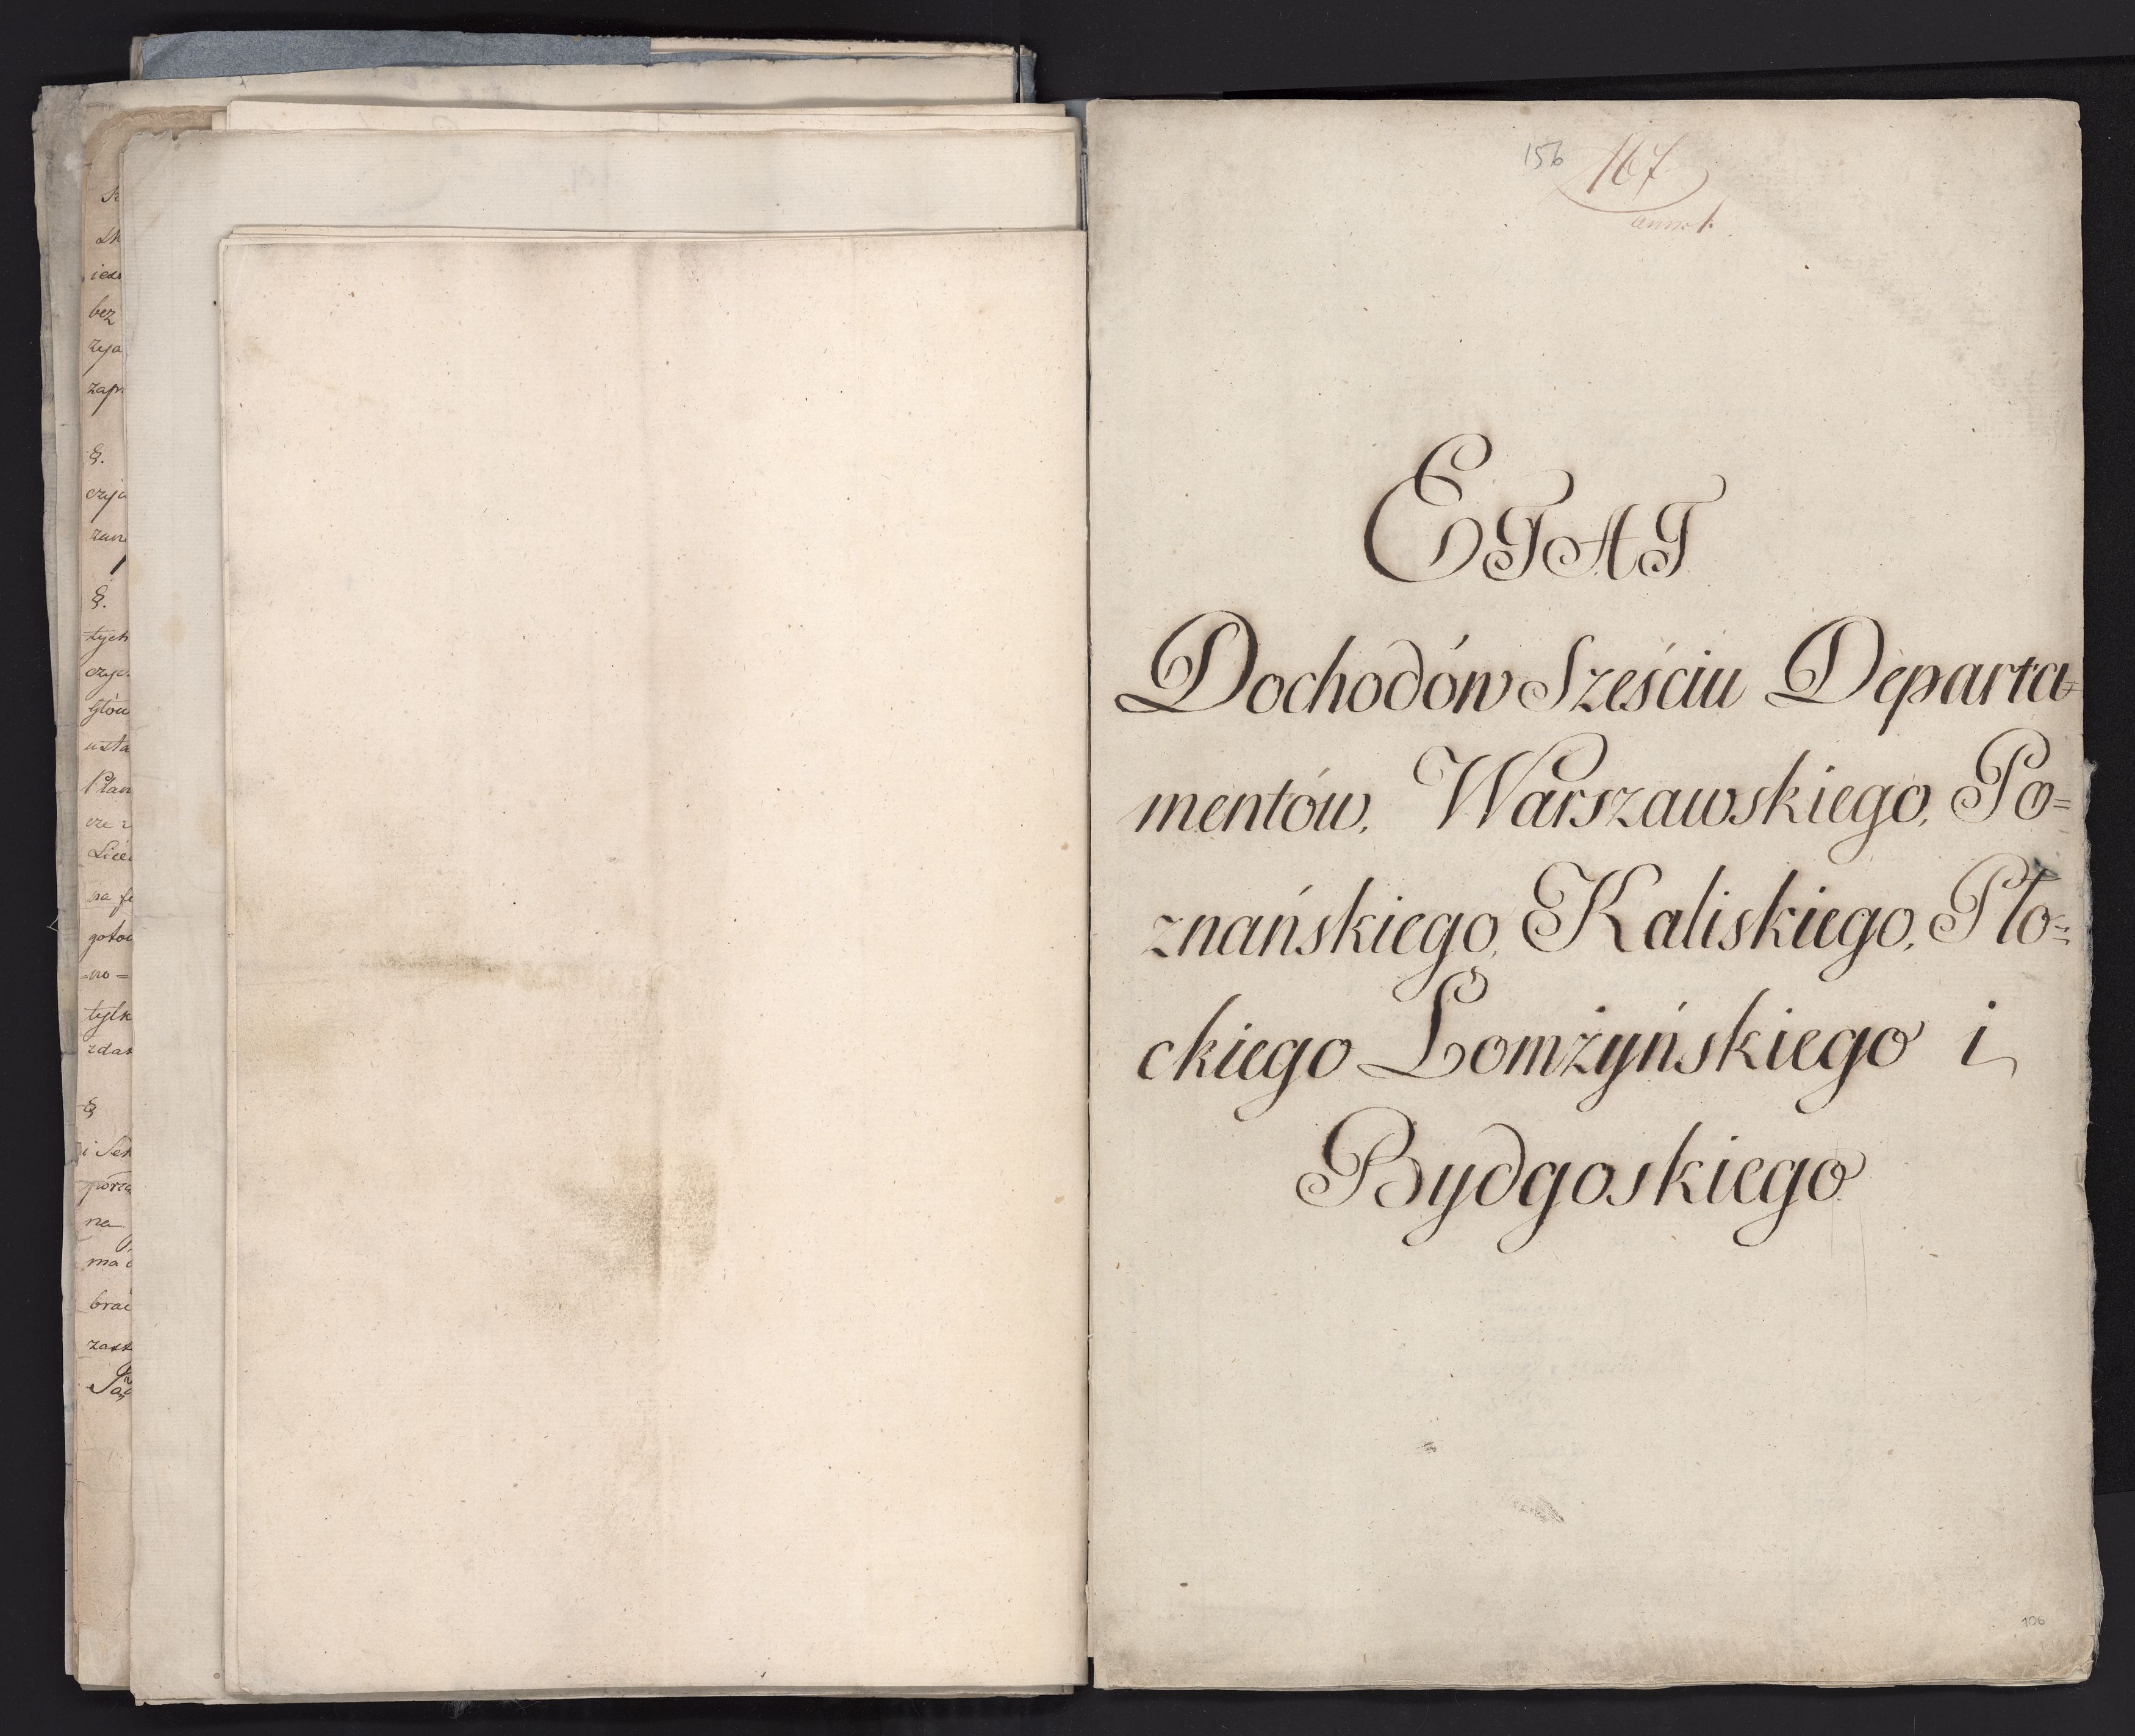 bez
§.
§.
tych
na
156 167
annex 1.
ETAT
Dochodów Sześciu Departa=
mentów, Warszawskiego, Po=
znańskiego, Kaliskiego, Pło=
ckiego Łomżyńskiego i
Bydgoskiego
156